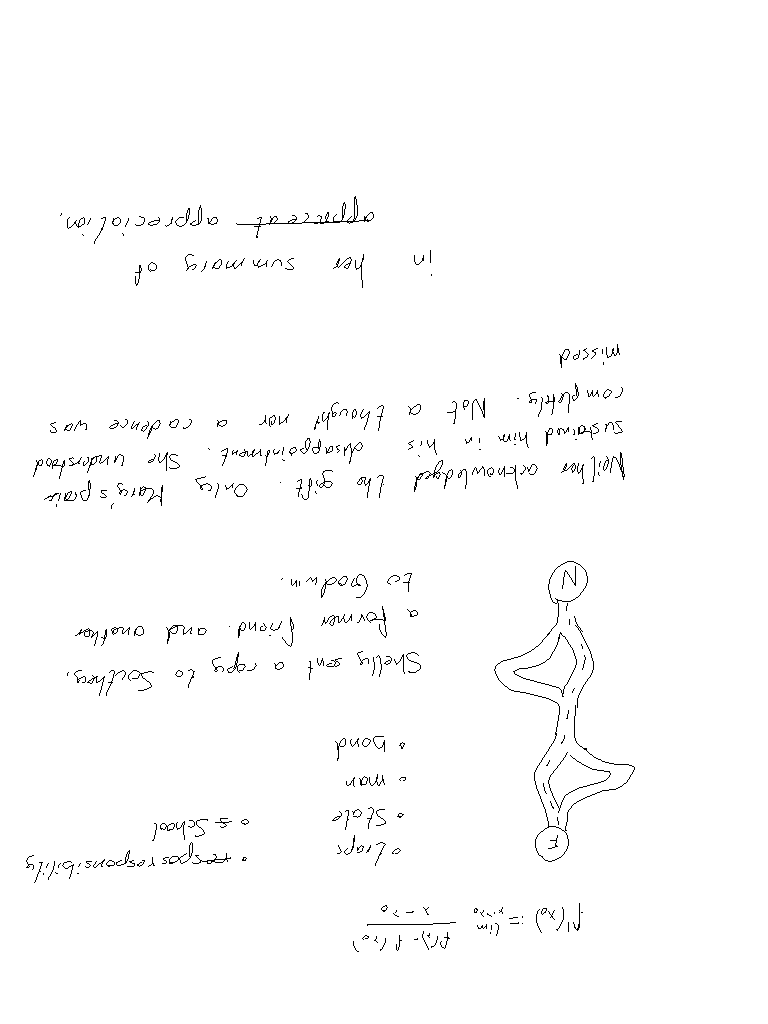 f'(x₀) := lim x→x₀ f(x) - f(x₀) / x - x₀
• Leaps
• State
• man
• bond
• respos responsibility
• s School
F
N
Shelly sent a copy to Southey,
a former friend. and another
to Goodwin.
Neither acknowledged the gift. Only Mary's prais
sustained him in his disappointment. She understood
completly. Not a thought nor a cadence was
missed
in her summary of
apprecat appreciation.